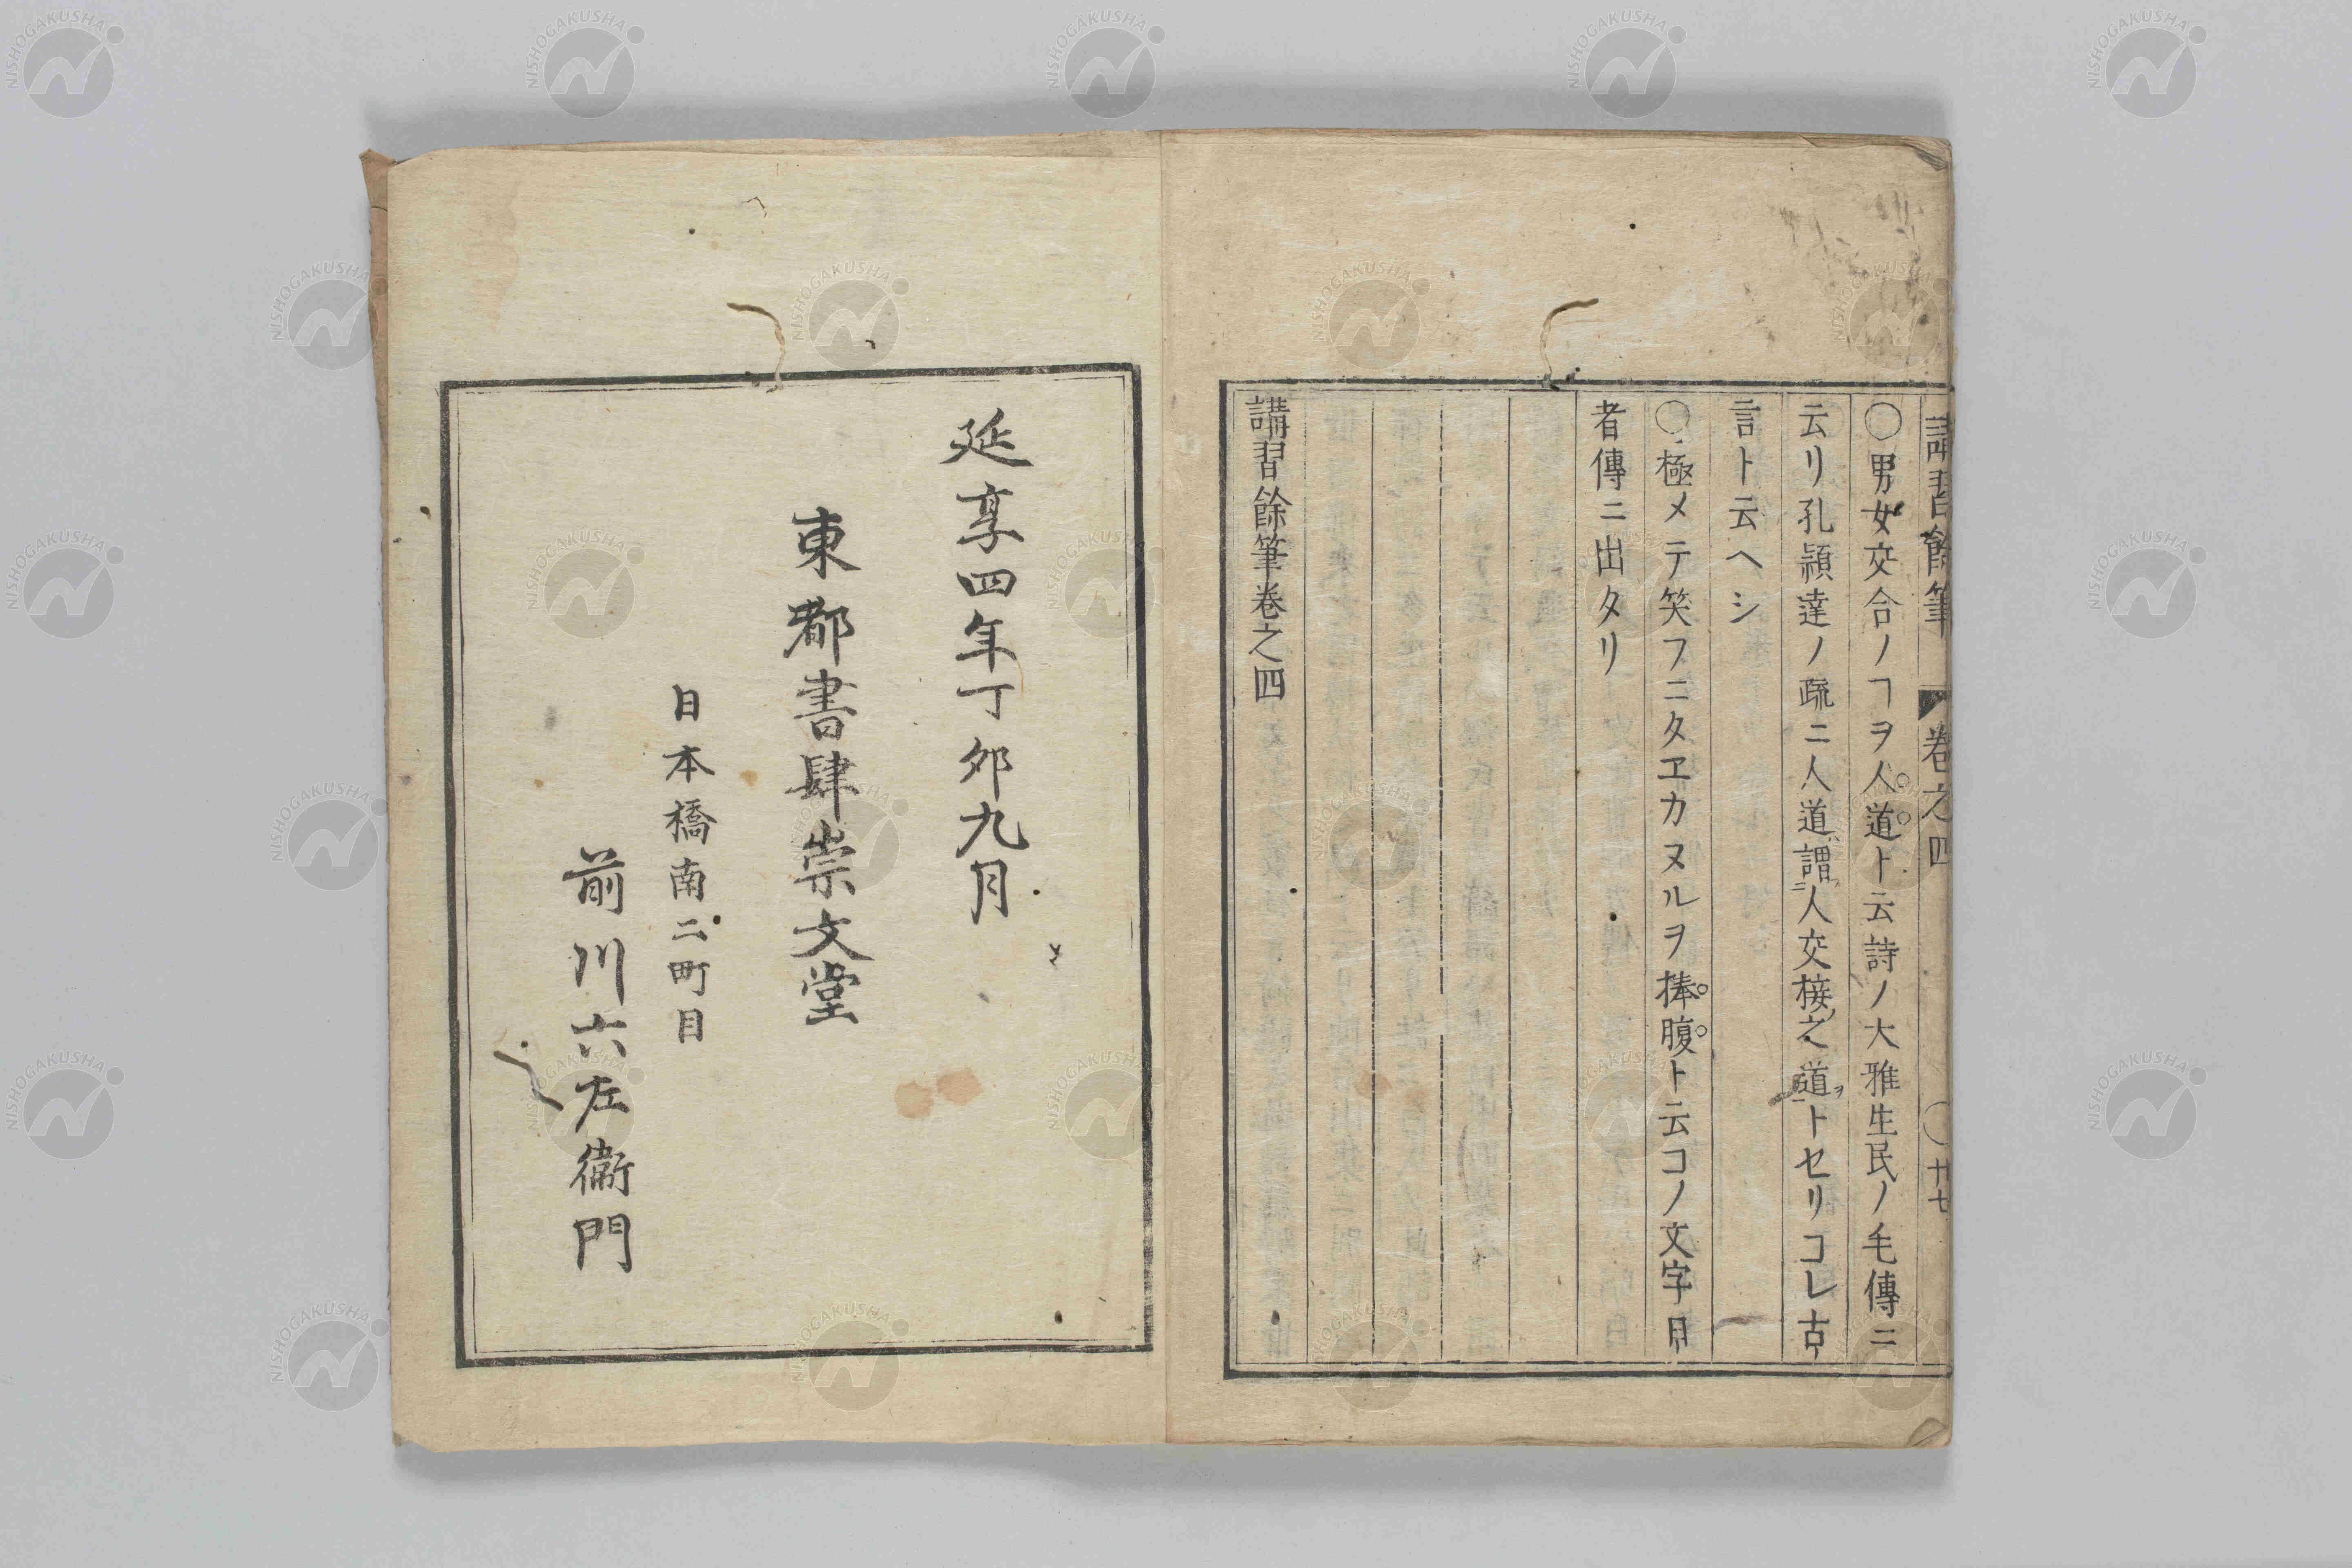 講習餘筆 卷之四 〇廿七
〇男女交合ノヿヲ人道ト云詩ノ大雅生民ノ毛傳ニ
云リ孔頴達ノ疏ニ人道謂人交接之道トセリコレ古
言ト云ヘシ
〇極メテ笑フニタヱカヌルヲ捧腹ト云コノ文字日
者傳ニ出タリ
講習餘筆卷之四
延享四年丁夘九月
東都書肆崇文堂
日本橋南二町目
前川六左衞門
NISHOGAKUSHA